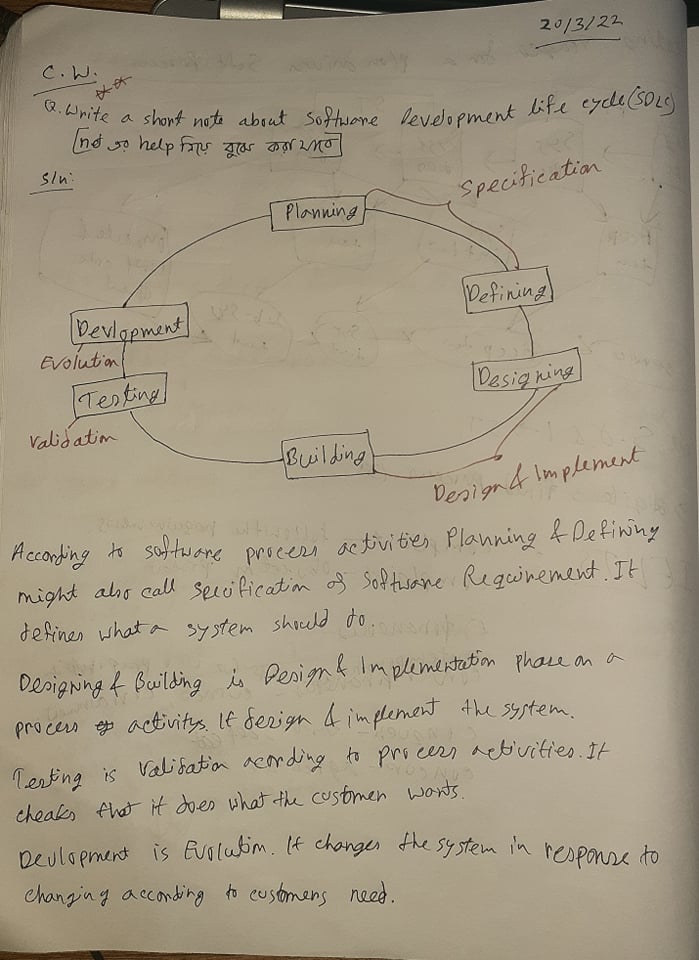 20/3/22
C.W.
Q. Write a short note about Software Development life cycle (SDLC)
[net এর help নিয়ে বুঝে করা যাবে]
Sln:
Planning
Specification
Defining
Devlopment
Evolution
Designing
Testing
Validation
Building
Design & Implement
According to software process activities Planning & Defining
might also call specification of Software Requirement. It
defines what a system should do.
Designing & Building is Design & Implementation phase on a
process activitys. It design & implement the system.
Testing is Validation acording to process activities. It
cheaks that it does what the customer wants.
Devlopment is Evolution. It changes the system in response to
changing according to customers need.